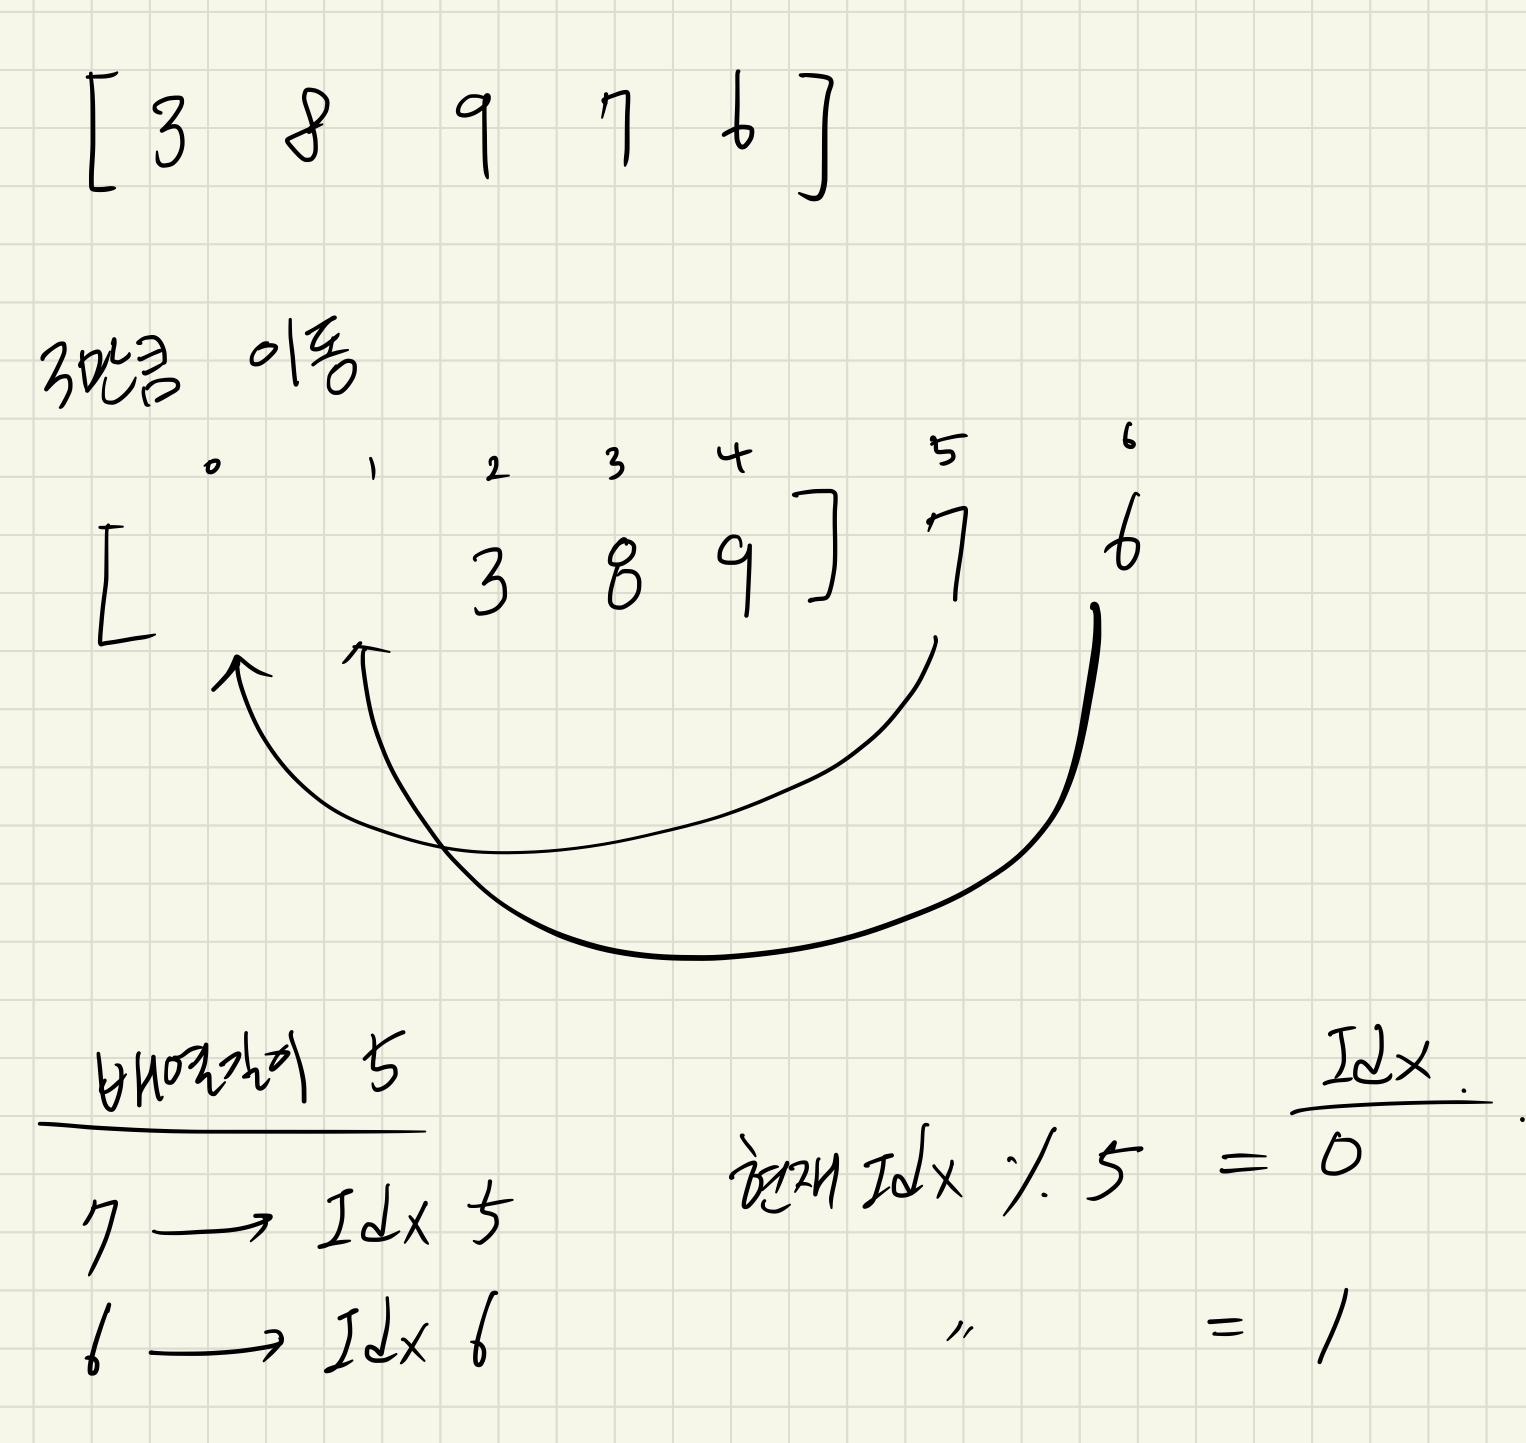 [ 3 8 9 7 6 ]
3만큼 이동
0 1 2 3 4 5 6
[ 3 8 9 ] 7 6
배열길이 5
Idx.
현재 Idx % 5 = 0
7 → Idx 5
6 → Idx 6 〃 = 1